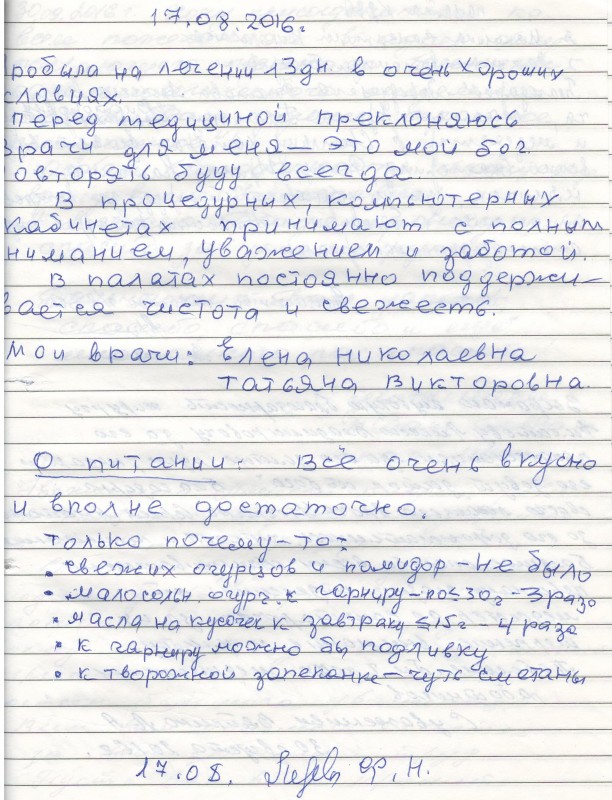 17.08.2016г.
Пробыла на лечении 13дн. в очень хороших
словиях.
перед медициной преклоняюсь
Врачи для меня — это мой бог.
овторять буду всегда.
В процедурных, компьютерных
кабинетах принимают с полным
ниманием, уважением и заботой.
В палатах постоянно поддержи-
вается чистота и свежесть.
Мои врачи: Елена Николаевна
Татьяна Викторовна.
О питании: Всё очень вкусно
и вполне достаточно.
Только почему-то:
• свежих огурцов и помидор - не было
• малосольн огурч. к гарниру - по ≤ 30г - 3 раза
• масла на кусочек к завтраку ≤ 15г - 4 раза
• к гарниру можно бы подливку
• к творожной запеканке - чуть сметаны
17.08.